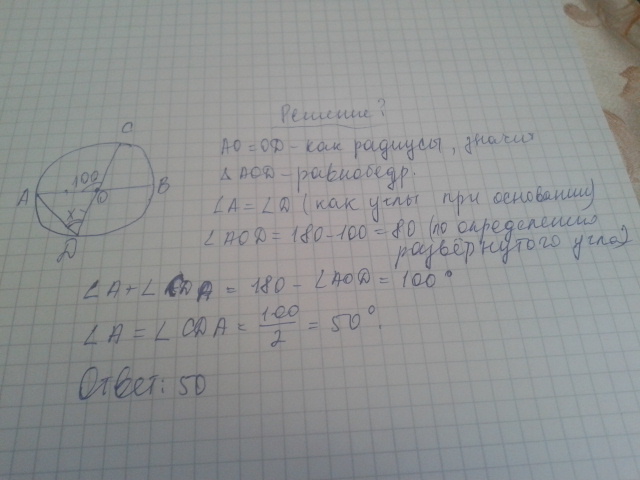 Решение?
C
100
A
O
B
x
D
AO = OD - как радиусы, значит
△AOD - равнобедр.
∠A = ∠D (как углы при основании)
∠AOD = 180 - 100 = 80 (по определению
развёрнутого угла)
∠A + ∠CDA = 180 - ∠AOD = 100°
∠A = ∠CDA = 100/2 = 50°.
Ответ: 50